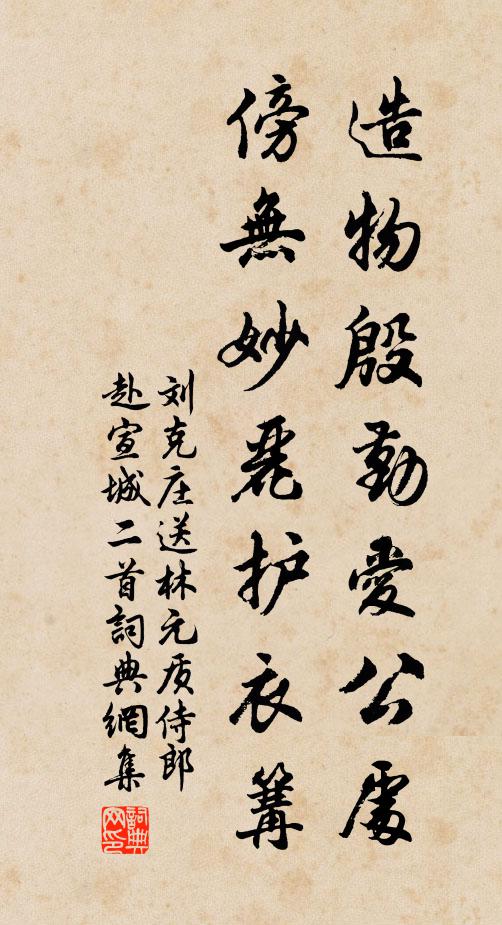 造物殷勤愛公處
傍無妙麗护衣篝
刘克庄送林元质侍郎
赴宣城二首詞典網集
詞典网印